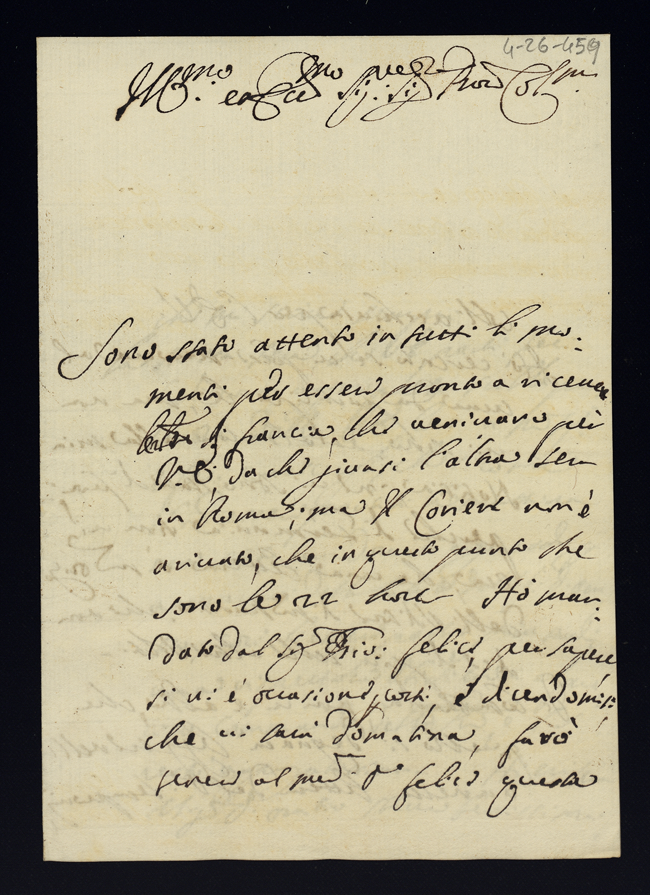 4-26-459
Ill.mo ed Ecc.mo Sig. Sig. Pron Col.mo
Sono stato attento in tutti li mo:
menti per essere pronto a ricevere
lettere di francia, che venivano per
V. E. da che giunsi l'altra sera
in Roma; ma Il Coriere non è
arivato, che in questo punto che
sono le 22 hore Hò man:
dato dal Sig. felice per sapere
si vi è occasione costì, e dicendomisi
che vi sarà domatina, farò
tenere al med. S.r felice questa